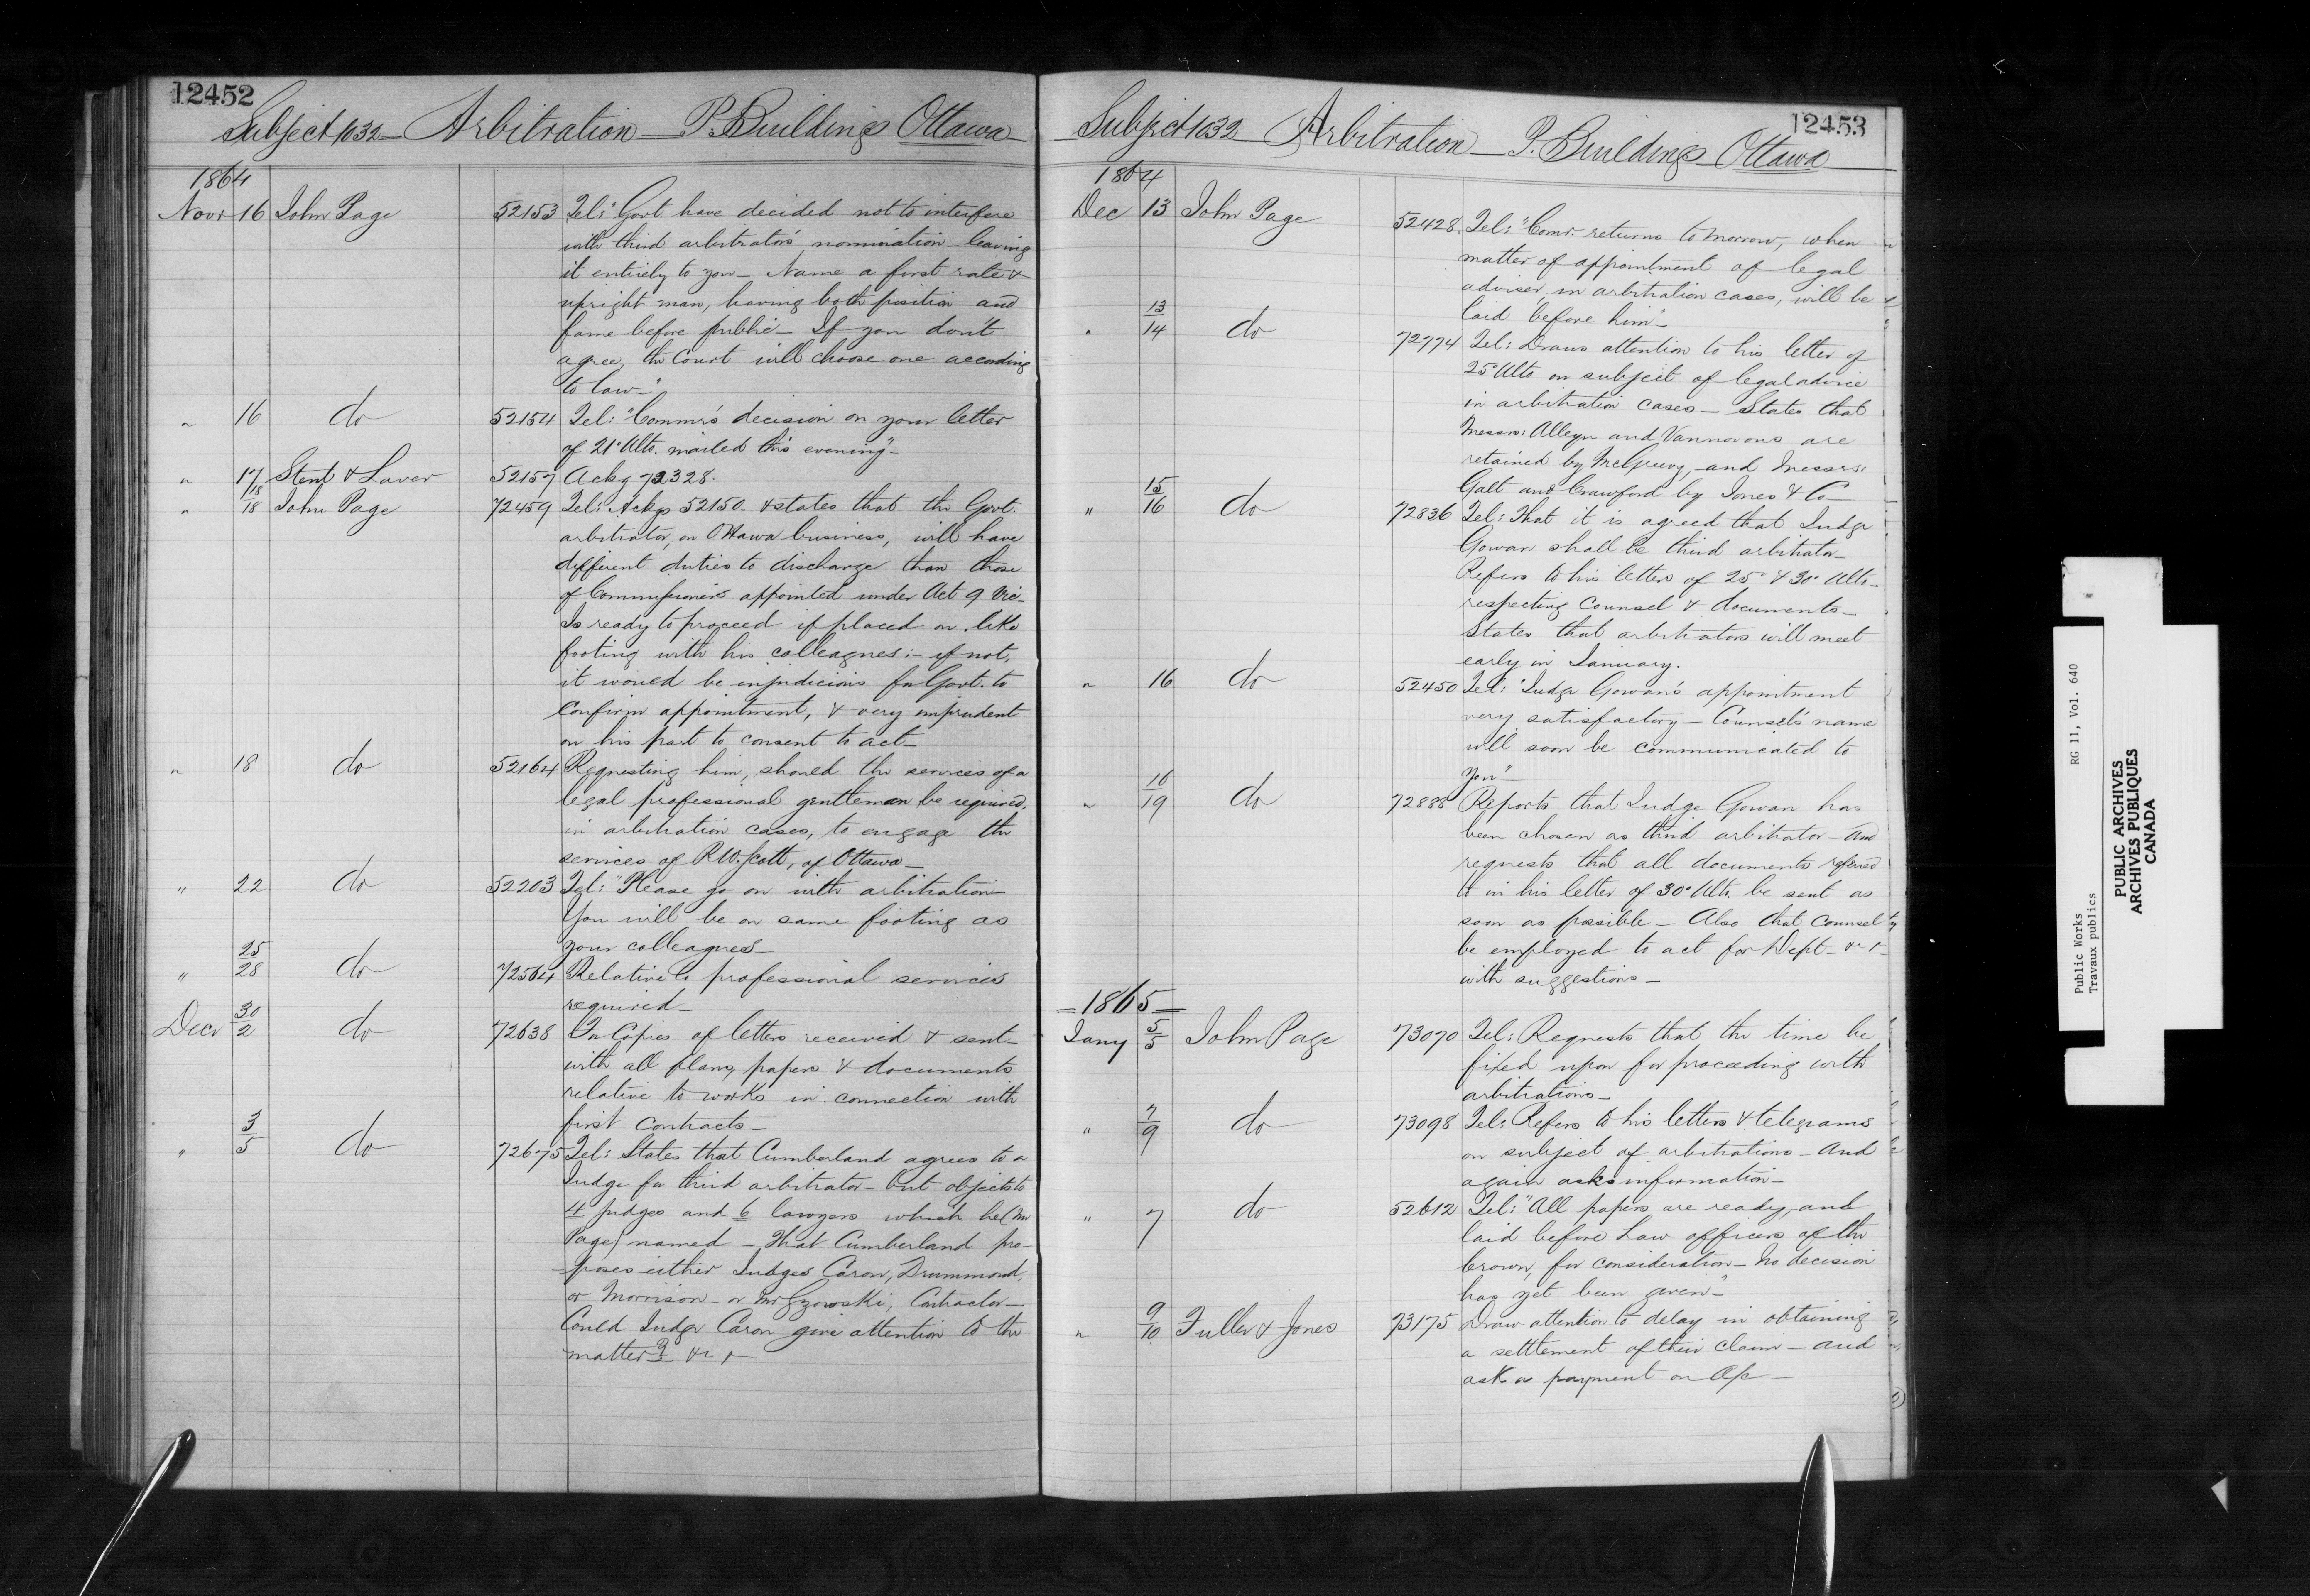 12452
Subject 1032 - Arbitration - P. Buildings Ottawa
1864
Novr 16 John Page 52153 Tel: "Govt. have decided not to interfere
with third arbitrator's nomination - leaving
it entirely to you - Name a first rate &
upright man, having both position and
fame before public - If you don't
agree, the Court will choose one according
to law -"
" 16 do 52154 Tel: "Commr's decision on your letter
of 21st Ulto. mailed this evening" -
" 17 Stent & Laver 52157 Ackg 72328.
" 18/18 John Page 72459 Tel: Ackgs 52150. & states that the Govt.
arbitrator, on Ottawa business, will have
different duties to discharge than those
of Commissioners appointed under Act 9 Vic -
Is ready to proceed if placed on like
footing with his colleagues: - if not,
it would be injudicious for Govt. to
confirm appointment, & very imprudent
on his part to consent to act -
" 18 do 52164 Requesting him, should the services of a
legal professional gentleman be required,
in arbitration cases, to engage the
services of R. W. Scott, of Ottawa -
" 22 do 52203 Tel: "Please go on with arbitration -
You will be on same footing as
your colleagues -
" 25/28 do 72564 Relative to professional services
required -
Decr 30/2 do 72638 For Copies of letters received & sent -
with all plans, papers & documents
relative to works in connection with
first contracts -
" 3/5 do 72675 Tel: States that Cumberland agrees to a
Judge for third arbitrator - but objects to
4 judges and 6 lawyers which he (Mr
Page) named - That Cumberland pro-
-poses either Judges Caron, Drummond,
or Morrison - or Mr Gzowski, Contractor -
Could Judge Caron give attention to the
matter? &c &c
12453
Subject 1032 - Arbitration - P. Buildings Ottawa
1864
Dec 13 John Page 52428 Tel: "Comr. returns tomorrow, when
matter of appointment of legal
adviser, in arbitration cases, will be
laid before him" -
" 13/14 do 72774 Tel: Draws attention to his letter of
25th Ulto on subject of legal advice
in arbitration cases - States that
Messrs: Alleyn and Vannovous are
retained by McGreevy, and Messrs:
Galt and Crawford by Jones & Co -
" 15/16 do 72836 Tel: That it is agreed that Judge
Gowan shall be third arbitrator -
Refers to his letters of 25th & 30th Ulto -
respecting Counsel & documents -
States that arbitrators will meet
early in January.
" 16 do 52450 Tel: "Judge Gowan's appointment
very satisfactory - Counsel's name
will soon be communicated to
you" -
" 16/19 do 72888 Reports that Judge Gowan has
been chosen as third arbitrator - And
requests that all documents referred
to in his letter of 30th Ulto. be sent as
soon as possible - Also that Counsel
be employed to act for Dept - &c &c
with suggestions -
- 1865 -
Jany 5/5 John Page 73070 Tel: Requests that the time be
fixed upon for proceeding with
arbitrations -
" 7/9 do 73098 Tel: Refers to his letters & telegrams
on subject of arbitrations - And
again asks information -
" 7 do 52612 Tel: "All papers are ready, and
laid before Law officers of the
Crown, for consideration - No decision
has yet been given" -
" 9/10 Fuller & Jones 73175 Draw attention to delay in obtaining
a setttlement of their claim - and
ask a payment on a/c -
Public Works RG 11, Vol. 640
Travaux publics
PUBLIC ARCHIVES
ARCHIVES PUBLIQUES
CANADA